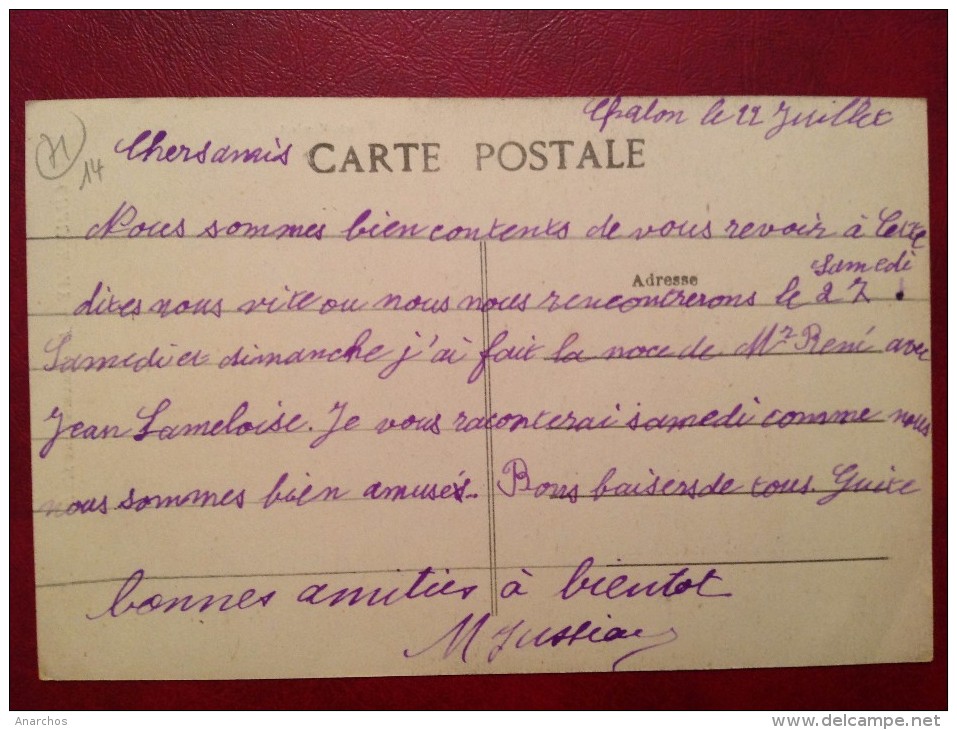 Chalon le 22 Juillet
71
14
Chers amis
CARTE POSTALE
Nous sommes bien contents de vous revoir à Cette
Adresse
samedi
dites nous vite ou nous nous rencontrerons le 27.
Samedi et dimanche j'ai fait la noce de Mr René avec
Jean Lameloise. Je vous raconterai samedi comme nous
nous sommes bien amusés. Bons baisers de tous. Guite
bonnes amitiés à bientot
M
Anarchos
delcampe.net